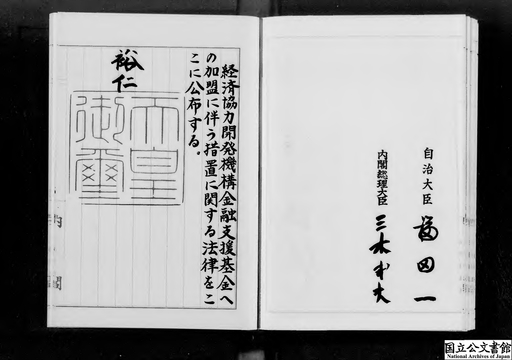 自治大臣 福田一
内閣総理大臣 三木武夫
経済協力開発機構金融支援基金へ
の加盟に伴う措置に関する法律をこ
こに公布する。
裕仁
天皇
御璽
内閣
国立公文書館
National Archives of Japan